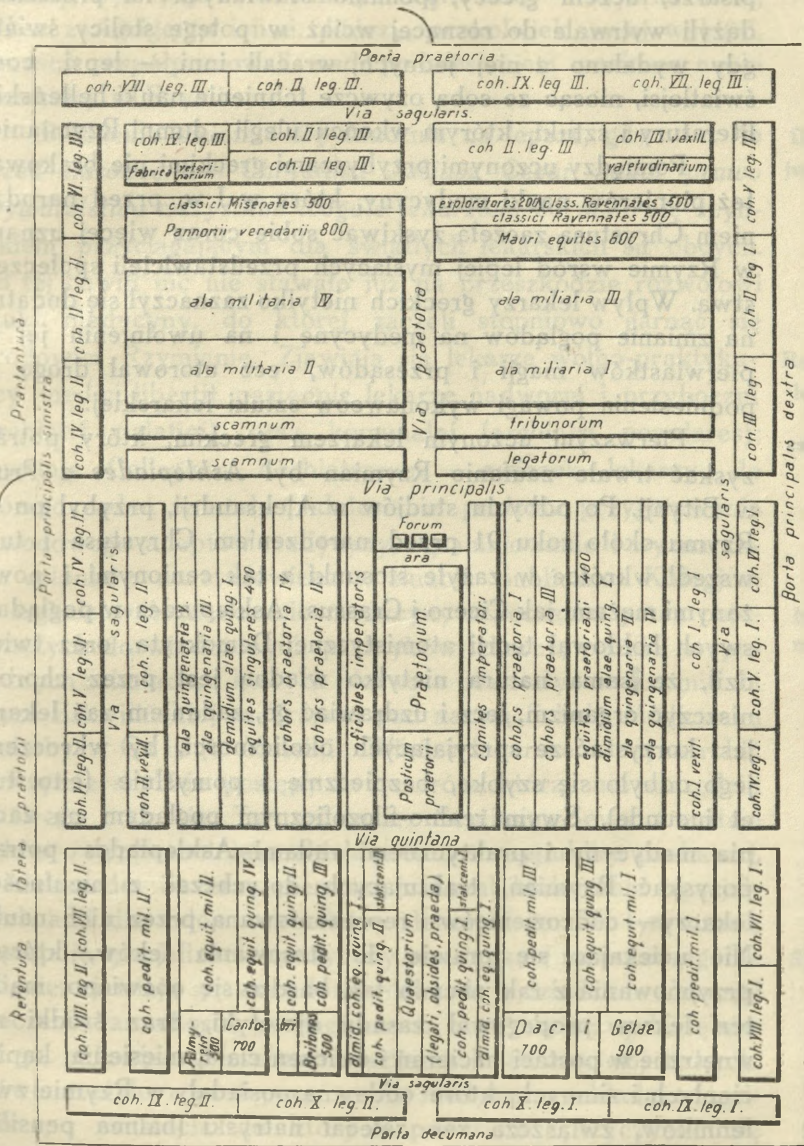 Porta praetoria
coh. VIII leg. III.
coh. II leg. III.
coh. IX. leg III.
coh. VII. leg III.
Via sagularis.
coh. VI. leg. III.
coh. II leg. II.
coh. IV leg. II.
coh. IV leg. III.
coh. II leg. III.
coh. III leg. III.
Fabrica
veterinarium
coh II. leg. III
coh. III. vexill.
valetudinarium
coh. V leg. III
coh. II leg. I.
coh. III leg. I.
classici Misenates 500
Pannonii veredarii 800
exploratores 200
class. Ravennates 500
classici Ravennates 500
Mauri equites 600
ala militaria IV
ala miliaria III
ala militaria II
ala miliaria I
Via praetoria
scamnum
tribunorum
scamnum
legatorum
Via principalis
Praetentura
Porta principalis sinistra
Porta principalis dextra
Latera praetorii
Retentura
coh. VI. leg. II.
coh. V leg. II.
coh. IV leg. II.
Via sagularis
coh. II. vexill.
coh. I. leg. II
ala quingenaria V.
ala quingenaria III
demidium alae quing. I
equites singulares 450
cohors praetoria IV
cohors praetoria II.
oficiales imperatoris
Forum
ara
Praetorium
Posticum praetorii
comites imperatori
cohors praetoria I
cohors praetoria III
equites praetoriani 400
dimidium alae quing. I
ala quingenaria II
ala quingenaria IV
coh. I. vexil.
coh I. leg I
Via sagularis
coh. IV. leg. I.
coh. V leg. I.
coh. II. leg. I.
Via quintana
coh. VIII leg. II
coh. VII leg. II
coh. pedit. mil. II
coh. equit. mil. II.
Palmyreni 500
coh. equit. quing. IV.
Canta-
700
coh. equit. quing. II
bri
coh pedit. quing. III
Britones 500
dimid. coh. eq. quing. I
coh. pedit. quing. II
stat. cent. II
Quaestorium
(legati, obsides, praeda)
coh. pedit. quing. I
stat. cent. I
dimid. coh. eq. quing. I.
coh. pedit. mil. III
Dac-
700
coh. equit. quing. III.
i
coh. equit. mil. I.
Getae
900
coh pedit. mil. I
coh. VIII. leg. I.
coh. VII. leg. I.
Via sagularis
coh. IX. leg II.
coh. X leg. II.
coh. X leg. I.
coh. IX leg. I.
Porta decumana